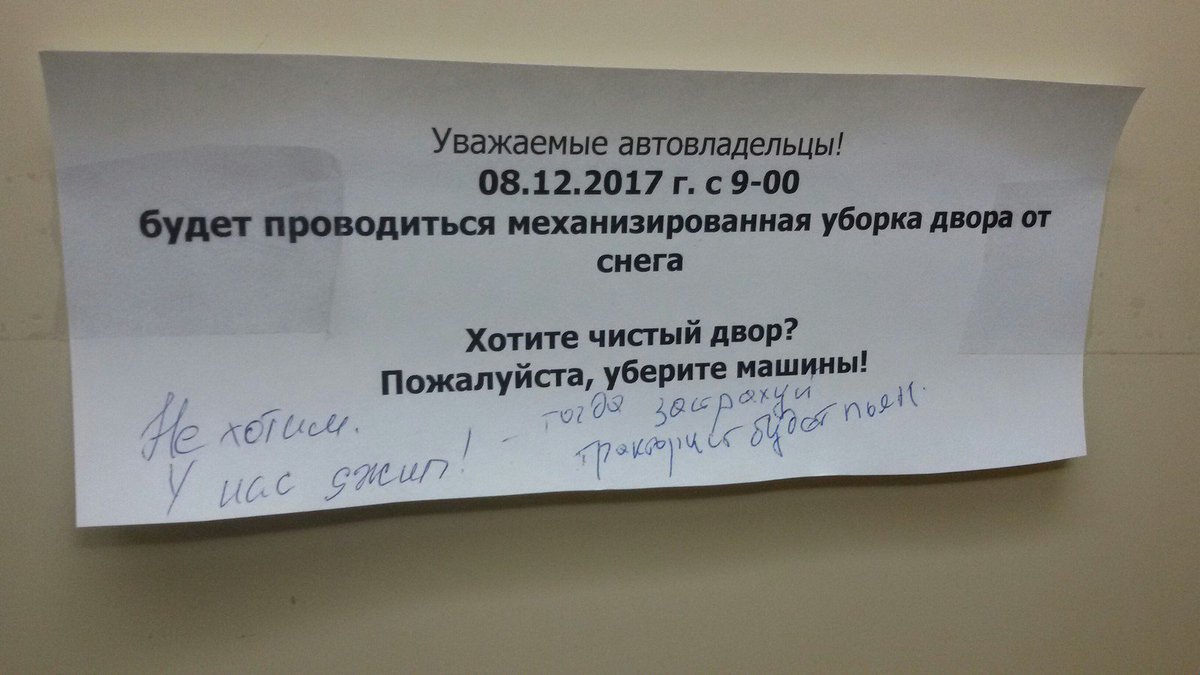 Уважаемые автовладельцы!
08.12.2017 г. с 9-00
будет проводиться механизированная уборка двора от
снега
Хотите чистый двор?
Пожалуйста, уберите машины!
Не хотим.
У нас джип!
- тогда застрахуй
тракторист будет пьян.